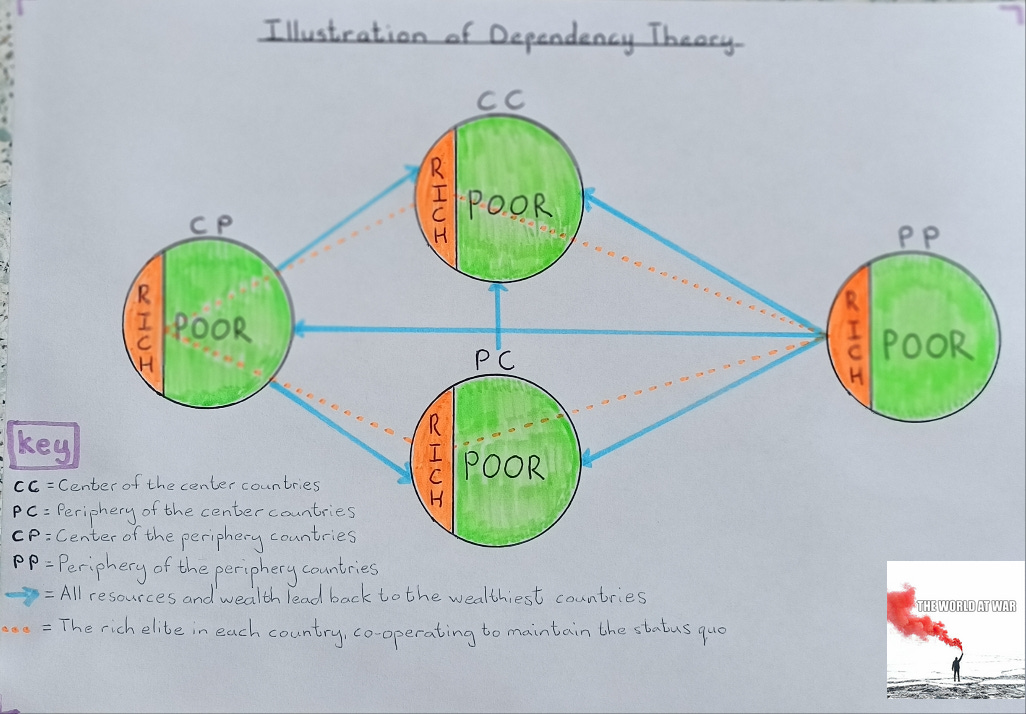 Illustration of Dependency Theory
CC
RICH
POOR
CP
RICH
POOR
PP
RICH
POOR
PC
RICH
POOR
key
CC = Center of the center countries
PC = Periphery of the center countries
CP = Center of the periphery countries
PP = Periphery of the periphery countries
= All resources and wealth lead back to the wealthiest countries
= The rich elite in each country, co-operating to maintain the status quo
THE WORLD AT WAR